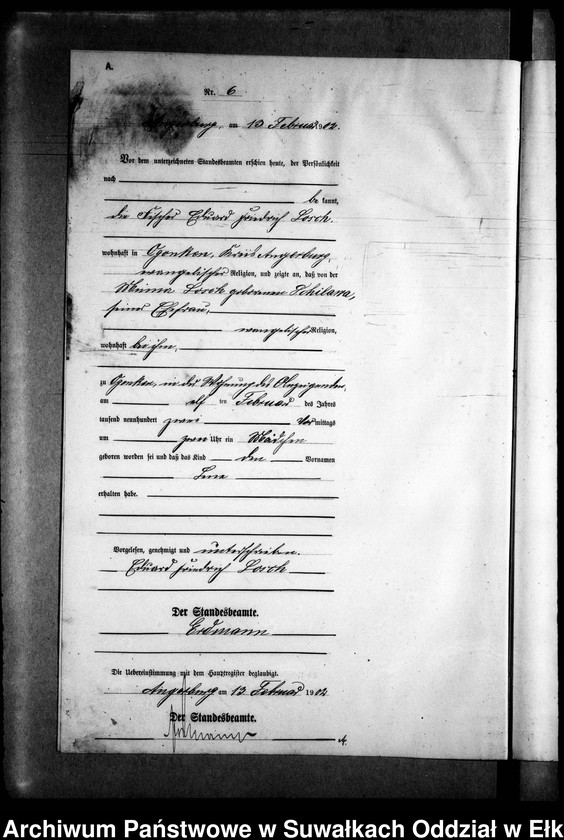 A.
Nr. 6
Angerburg, am 13 Februar 1902.
Vor dem unterzeichneten Standesbeamten erschien heute, der Persönlichkeit
nach
be kannt,
der Fischer Eduard Friedrich Losch.
wohnhaft in Ogonken, Kreis Angerburg,
evangelischer Religion, und zeigte an, daß von der
Losch geborenen
seiner Ehefrau,
evangelischer Religion,
wohnhaft bei ihm,
zu Ogonken, in der Wohnung des Anzeigenden,
am elf ten Februar des Jahres
tausend neunhundert zwei Vormittags
um zwei Uhr ein Mädchen
geboren worden sei und daß das Kind den Vornamen
Lena
erhalten habe.
Vorgelesen, genehmigt und unterschrieben.
Eduard Friedrich Losch
Der Standesbeamte.
Erdmann
Die Uebereinstimmung mit dem Hauptregister beglaubigt.
Angerburg am 13 Februar 1902
Der Standesbeamte.
Archiwum Państwowe w Suwałkach Oddział w Ełk